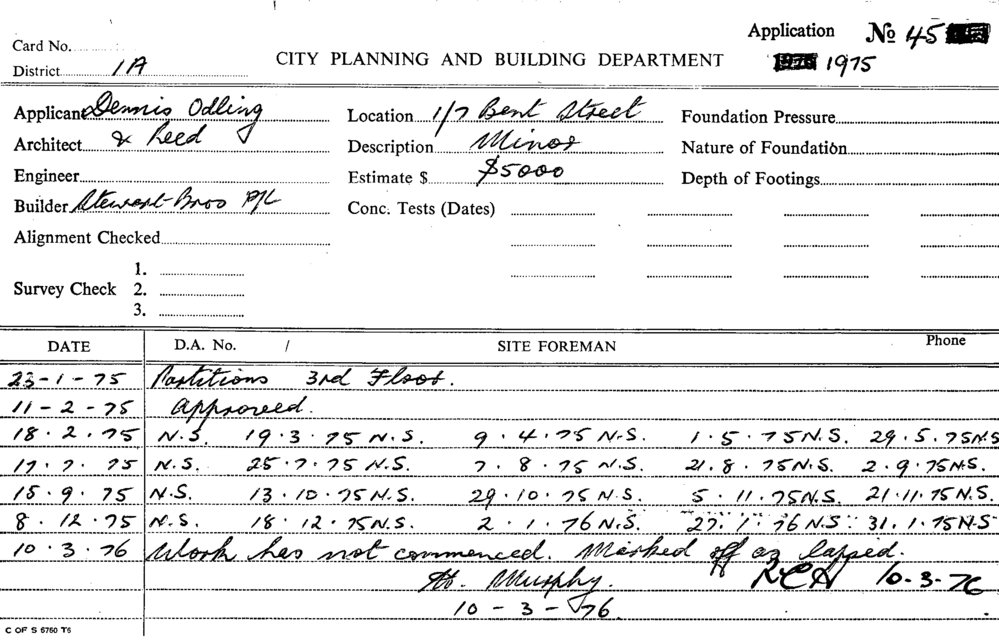 Application No 45
Card No.
District 1A
CITY PLANNING AND BUILDING DEPARTMENT
1975
Applicant Dennis Odling Location 1/7 Bent Street Foundation Pressure
Architect & Reed Description Minor Nature of Foundation
Engineer Estimate $ $5000 Depth of Footings
Builder Stewart Bros P/L Conc. Tests (Dates)
Alignment Checked
1.
Survey Check 2.
3.
DATE D.A. No. / SITE FOREMAN Phone
23-1-75 Partitions 3rd Floor.
11-2-75 Approved.
18.2.75 N.S. 19.3.75 N.S. 9.4.75 N.S. 1.5.75 N.S. 29.5.75 N.S
17.7.75 N.S. 25.7.75 N.S. 7.8.75 N.S. 21.8.75 N.S. 2.9.75 N.S.
15.9.75 N.S. 13.10.75 N.S. 29.10.75 N.S. 5.11.75 N.S. 21.11.75 N.S.
8.12.75 N.S. 18.12.75 N.S. 2.1.76 N.S. 27.1.76 N.S. 31.1.75 N-S
10.3.76 Work has not commenced. Marked off as lapsed.
Murphy. RCH 10-3-76
10-3-76
C OF S 5750 T6